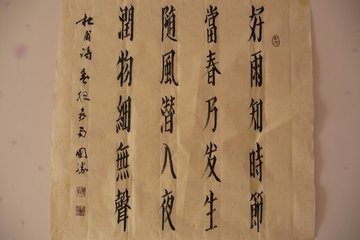 好雨知時節
當春乃发生
隨風潛入夜
潤物細無聲
杜甫詩